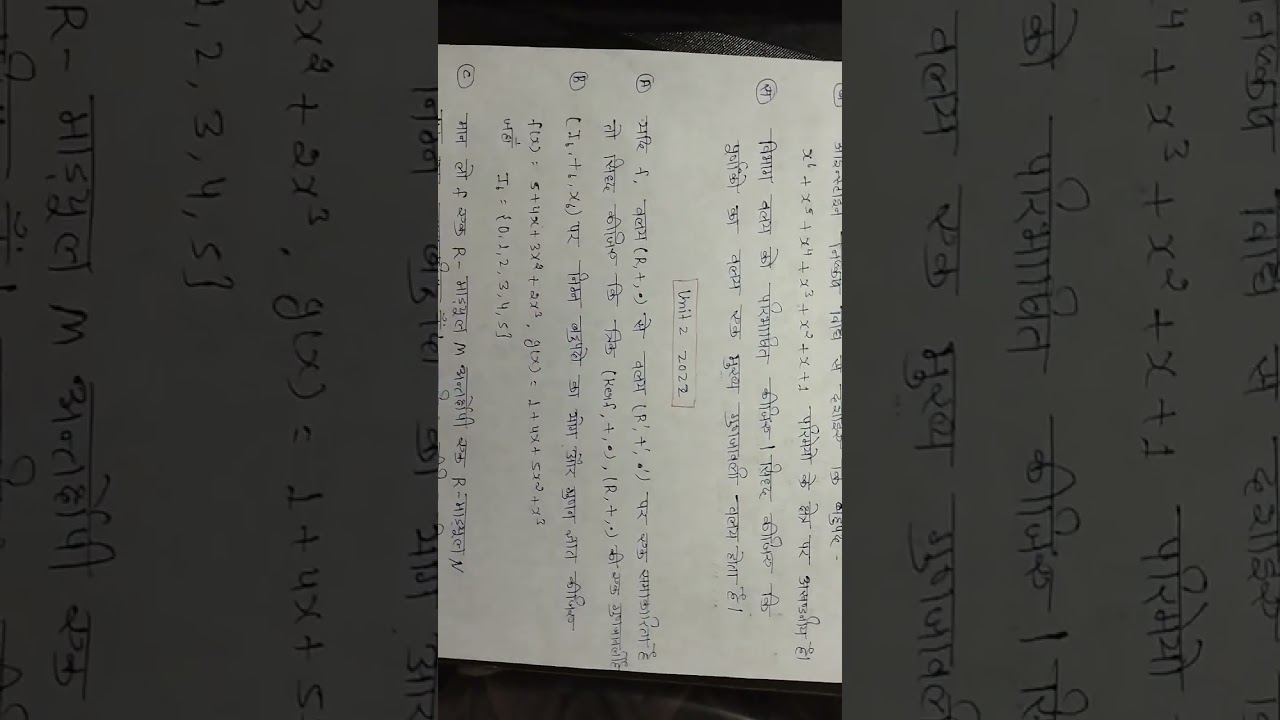 आइन्स्टाइन निष्कर्ष विधि से दर्शाइए कि बहुपद -
x⁶ + x⁵ + x⁴ + x³ + x² + x + 1 परिमेयों के क्षेत्र पर अखण्डनीय है।
विभाग वलय को परिभाषित कीजिए। सिद्ध कीजिए कि
पूर्णांकों का वलय एक मुख्य गुणजावली वलय होता है।
Unit 2 2022
(A) यदि f, वलय (R, +, •) से वलय (R', +', •') पर एक समाकारिता है
तो सिद्ध कीजिए कि त्रिक (Kerf, +, •), (R, +, •) की एक गुणजावली है
(B) (I₆, +₆, ×₆) पर निम्न बहुपदों का योग और गुणन ज्ञात कीजिए
f(x) = 5 + 4x + 3x² + 2x³, g(x) = 1 + 4x + 5x² + x³
जहाँ I₆ = {0, 1, 2, 3, 4, 5}
(C) मान लो f एक R - माड्यूल M अन्तर्क्षेपी एक R - माड्यूल N